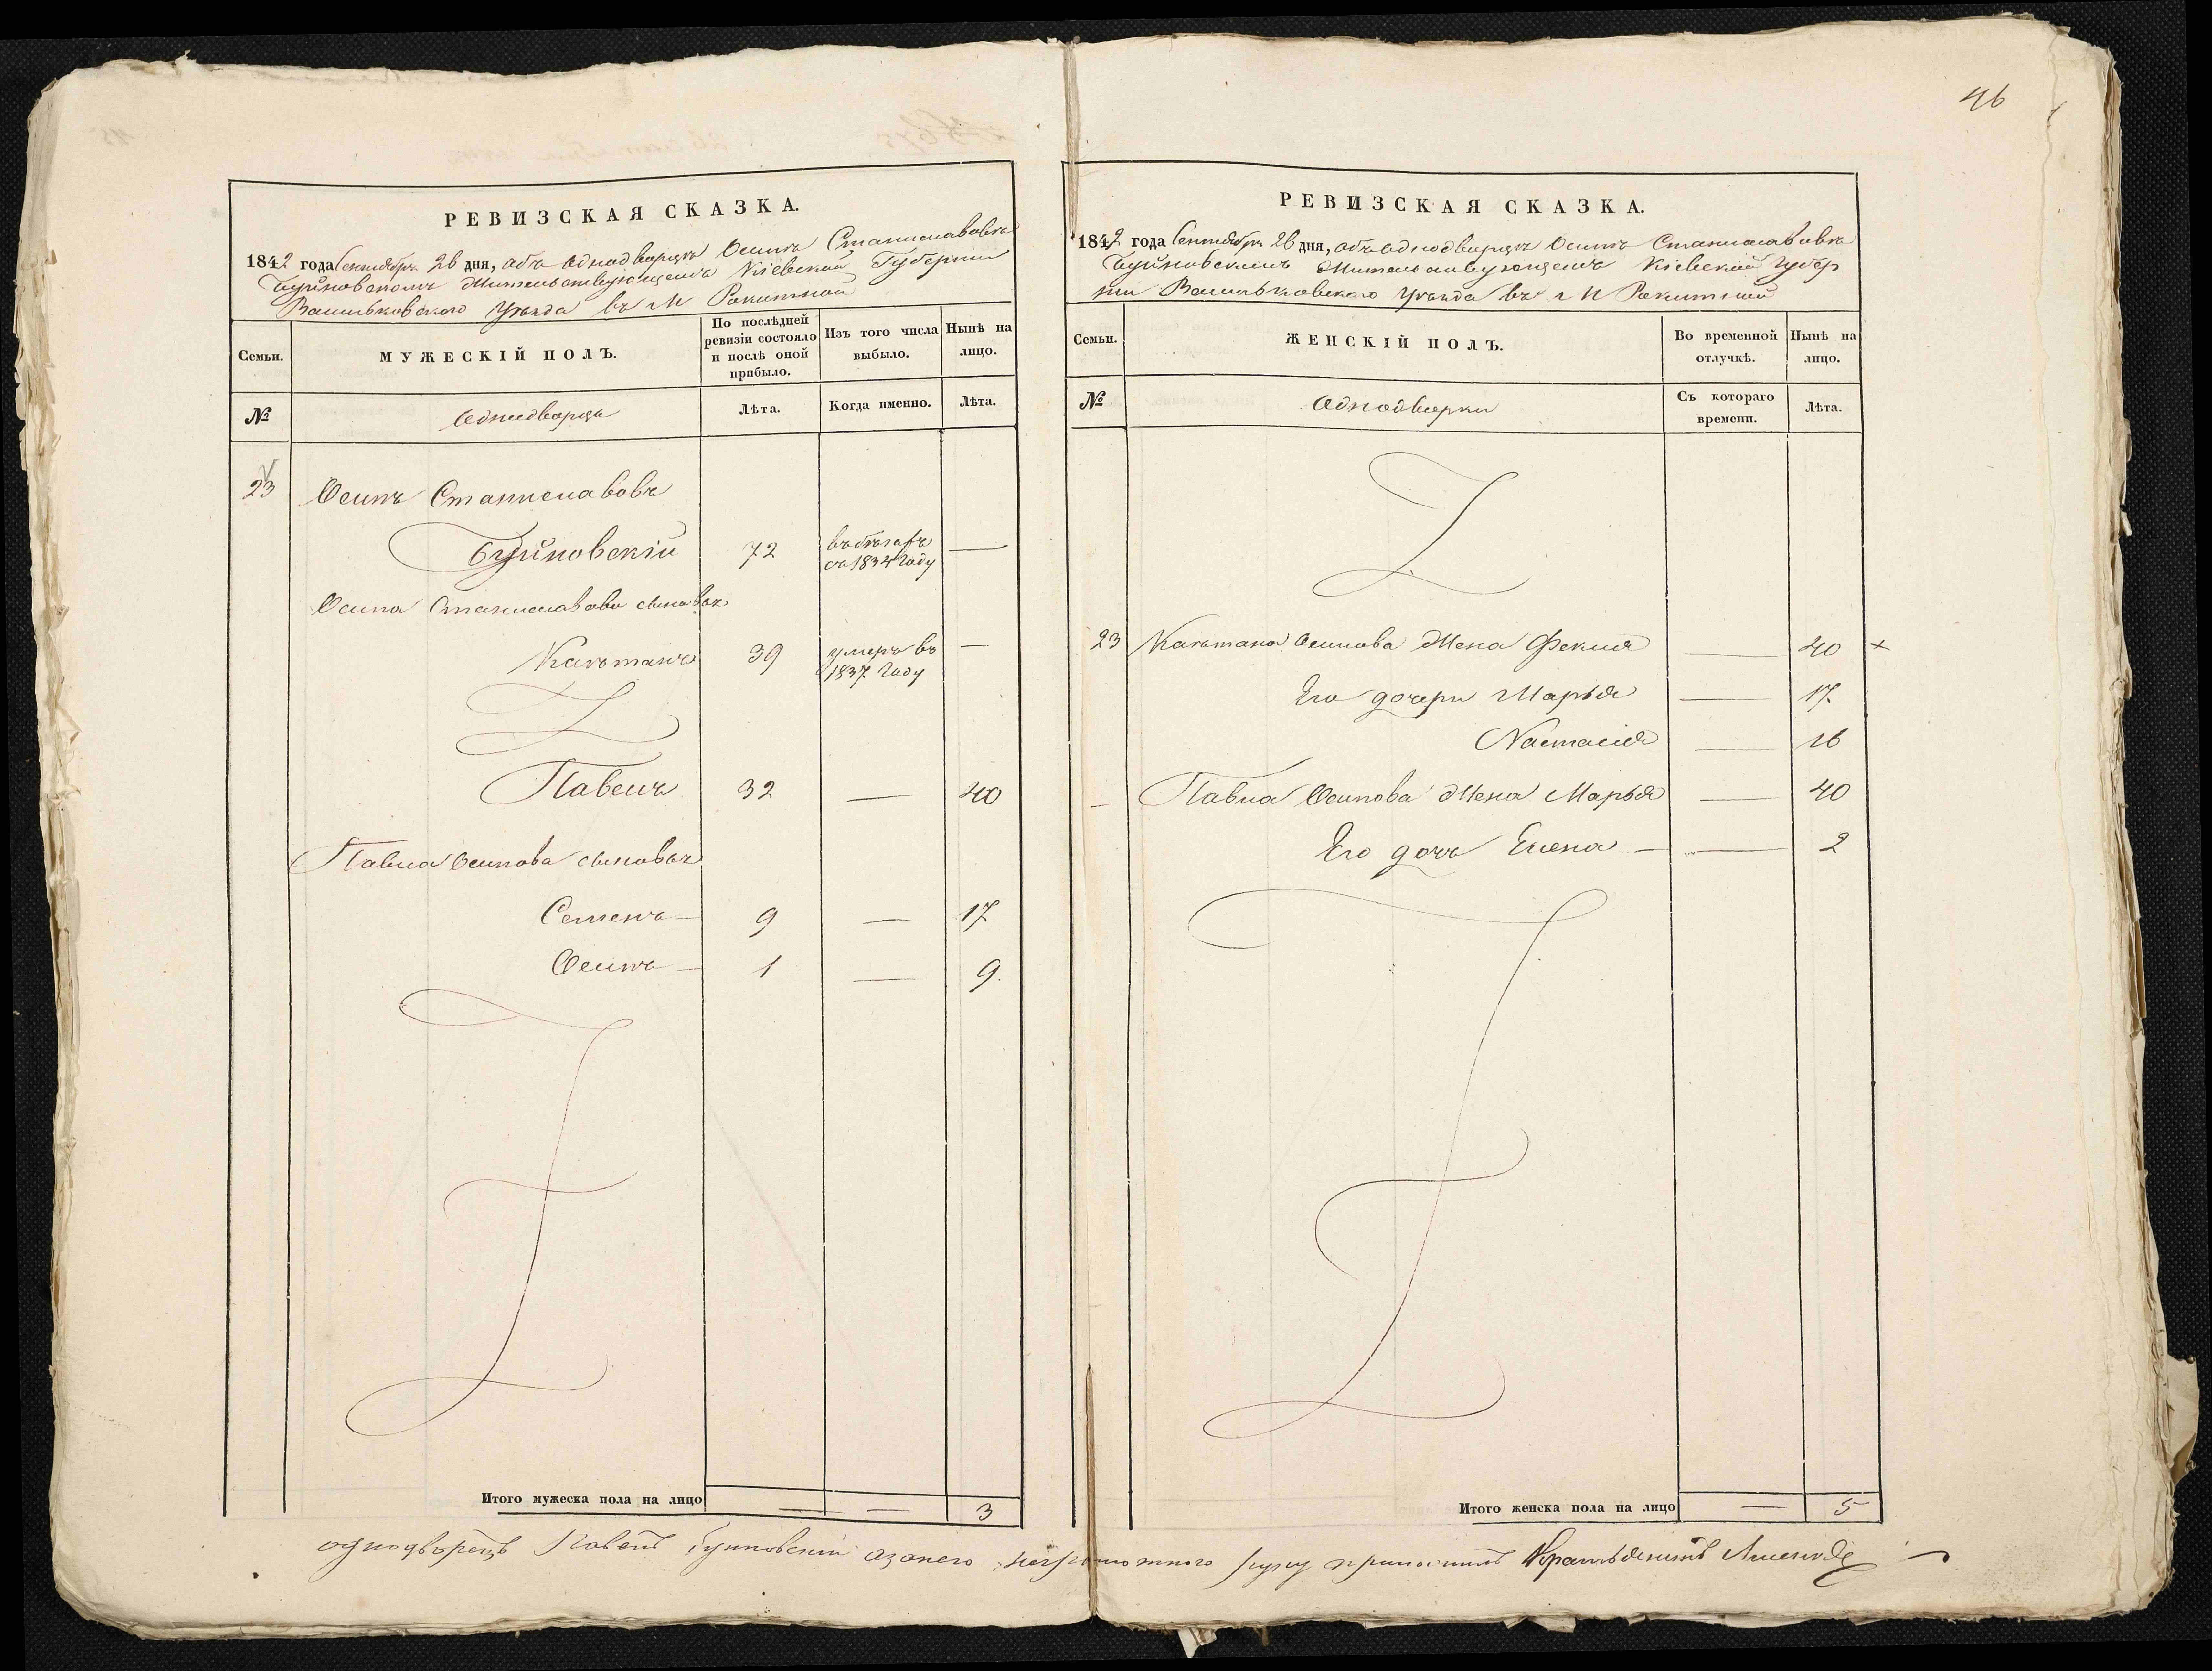 46
РЕВИЗСКАЯ СКАЗКА.
1842 года Сентября 26 дня, объ однодворцѣ Осипѣ Станиславовѣ
Буйновскомъ жительствующемъ Кіевской Губерніи
Васильковскаго Уѣзда въ м Рокитной
Семьи.
МУЖЕСКІЙ ПОЛЪ.
По послѣдней ревизіи состояло и послѣ оной прибыло.
Изъ того числа выбыло.
Нынѣ на лицо.
№
Однодворцы
Лѣта.
Когда именно.
Лѣта.
23 Осипъ Станиславовъ
Буйновскій 72 въ бѣгахъ —
съ 1834 году
Осипа Станиславова сыновья
Каэтанъ 39 умеръ въ —
1837 году
Павелъ 32 — 40
Павла Осипова сыновья
Семенъ — 9 — 17
Осипъ — 1 — 9.
Итого мужеска пола на лицо — — 3
РЕВИЗСКАЯ СКАЗКА.
1842 года Сентября 26 дня, объ однодворцѣ Осипѣ Станиславовѣ
Буйновскимъ жительствующемъ Кіевской Губер
ніи Васильковскаго Уѣзда въ м Рокитной
Семьи.
ЖЕНСКІЙ ПОЛЪ.
Во временной отлучкѣ.
Нынѣ на лицо.
№
Однодворки
Съ котораго времени.
Лѣта.
23 Каэтана Осипова жена Фекла — 40 ×
Его дочери Марья — 17.
Настасія — 16
— Павла Осипова жена Марья — 40
Его дочь Елена — — 2
Итого женска пола на лицо — 5
однодворецъ Павелъ Буйновскій а за него неграмотного руку приложилъ